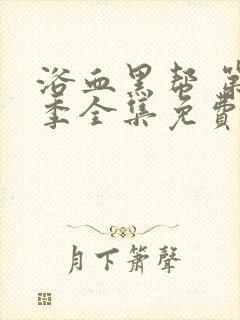 浴血黑帮 第
季全集免费
月下萧聲